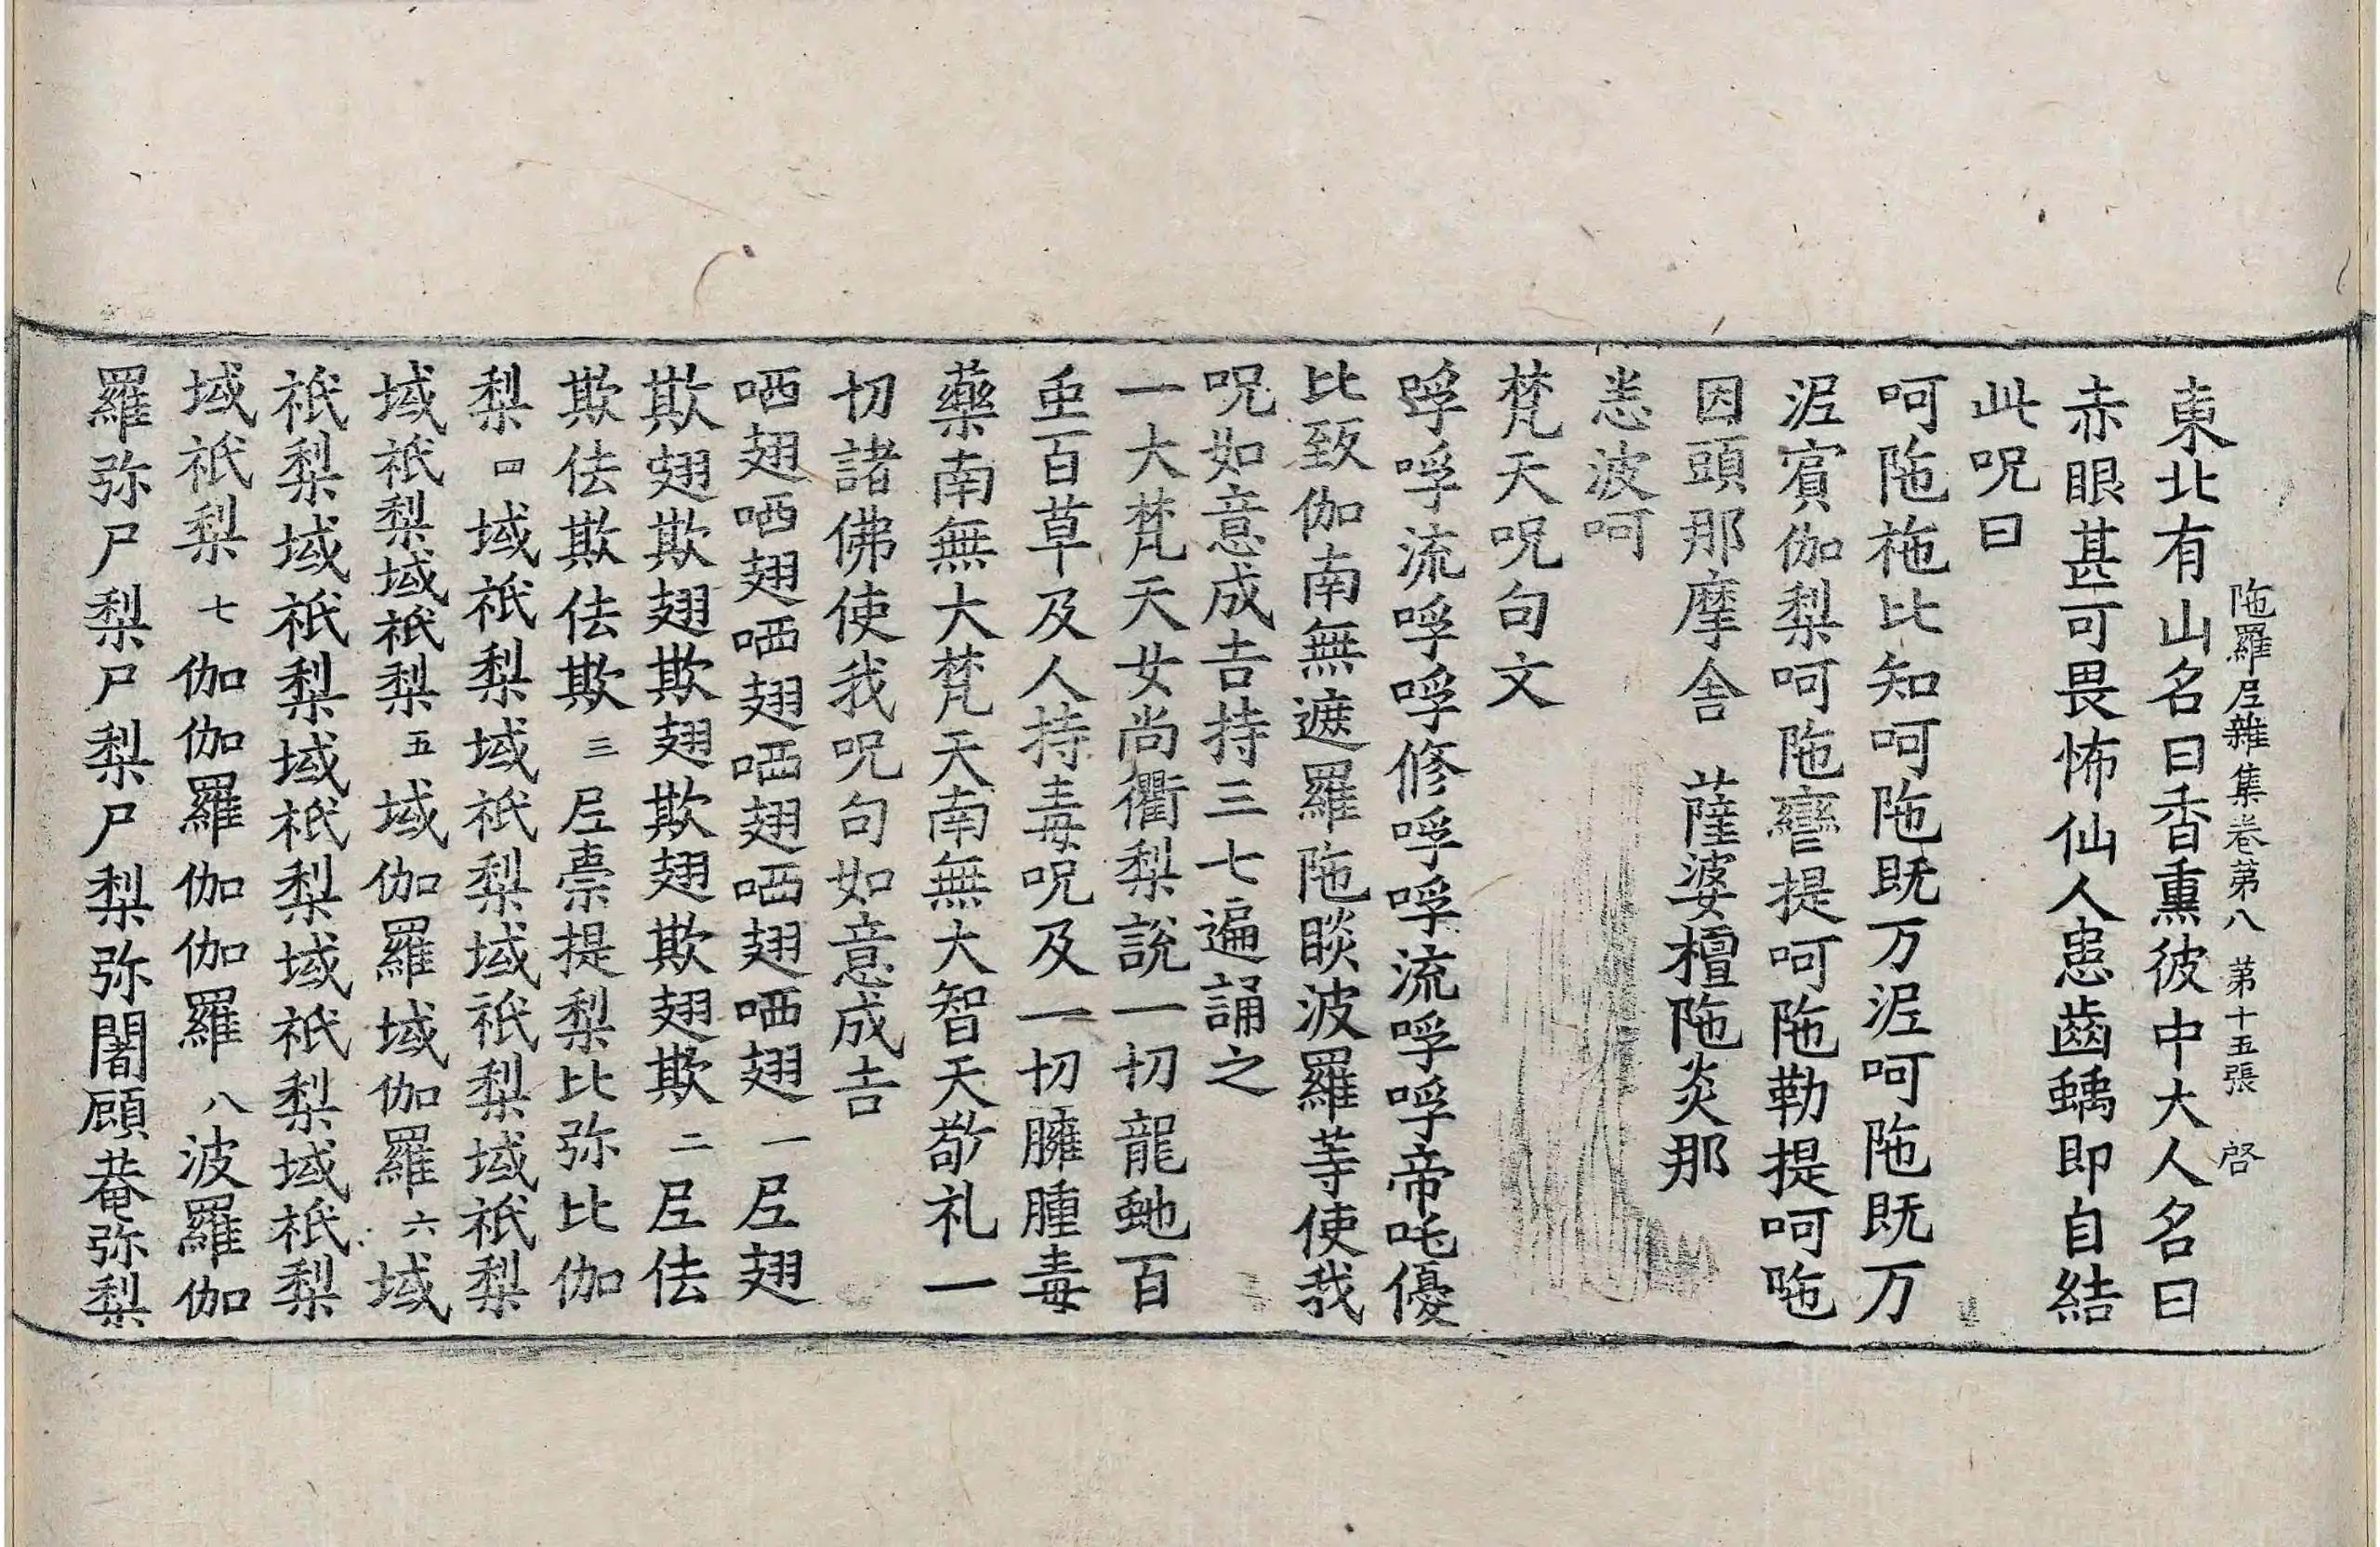 陁羅𡰱雜集卷第八 第十五張 啓
東北有山名曰香熏彼中大人名曰
赤眼甚可畏怖仙人患齒蝺即自結
此呪曰
呵陁柂比知呵陁既万涩呵陁既万
涩賔伽梨呵陁䜌提呵陁勒提呵咃
因頭那摩舎 薩婆檀陁炎那
恙波呵
梵天呪句文
㝊呼流呼呼修呼呼流呼呼帝吒優
比致伽南無遮羅陁睒波羅䓁使我
呪如意成吉持三七遍誦之
一大梵天女尚衢梨說一切龍虵百
䖝百草及人持毒呪及一切臃腫毒
藥南無大梵天南無大智天敬礼一
切諸佛使我呪句如意成吉
哂翅哂翅哂翅哂翅哂翅哂翅 一 𡰱翅
欺翅欺翅欺翅欺翅欺翅欺 二 𡰱佉
欺佉欺佉欺 三 𡰱㮈提梨比弥比伽
梨 四 域祇梨域祇梨域祇梨域祇梨
域祇梨域祇梨 五 域伽羅域伽羅 六 域
祇梨域祇梨域祇梨域祇梨域祇梨
域祇梨 七 伽伽羅伽伽羅 八 波羅伽
羅弥尸梨尸梨尸梨弥闍頋菴弥梨